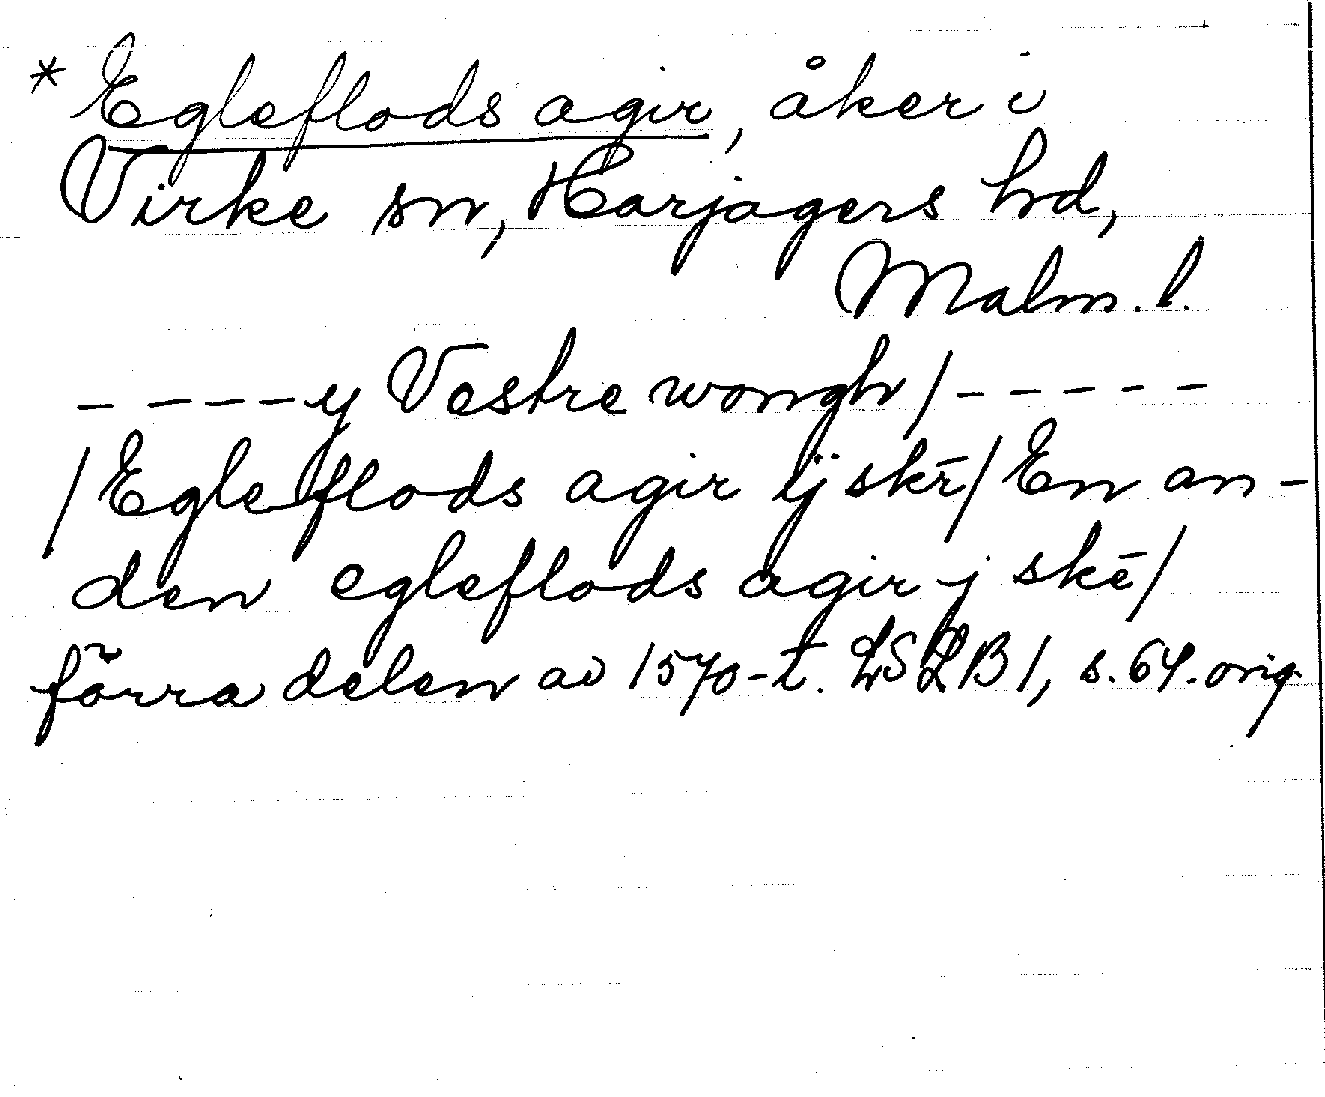 * Egleflods agir, åker i
Virke sn, Harjagers hd,
Malm. l.
- - - - y Vestre wongh / - - - - -
/ Egleflods agir ij skē / En an-
den egleflods agir j skē /
förra delen av 1570-t. LSLB 1, s. 64. orig.